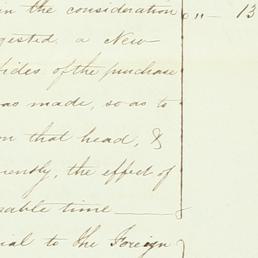 in the consideration
gested a New
ticles of the purchase
as made, so as to
on that head, &
rently, the effect of
sable time
ial to the Foreign
0 " - 13